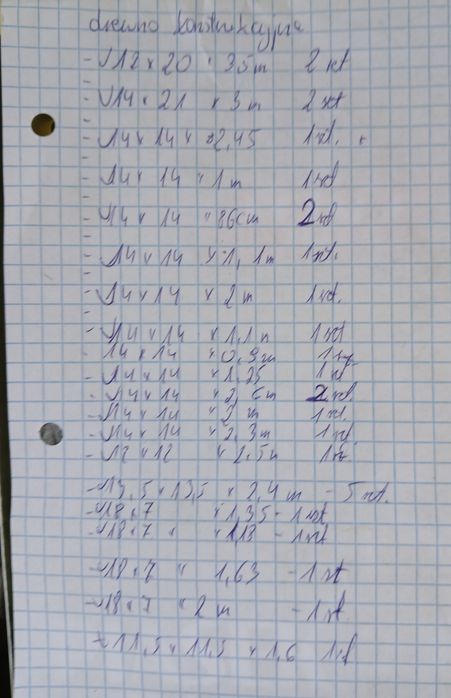 drewno konstrukcyjne
- 12 x 20 x 3,5 m 2 szt
- 14 x 21 x 3 m 2 szt
- 14 x 14 x 2,45 1 szt.
- 14 x 14 x 1 m 1 szt
- 14 x 14 x 86 cm 2 szt
- 14 x 14 x 1,1 m 1 szt.
- 14 x 14 x 2 m 1 szt.
- 14 x 14 x 1,1 m 1 szt
- 14 x 14 x 0,9 m 1 szt.
- 14 x 14 x 1,25 1 szt
- 14 x 14 x 2,6 m 2 szt.
- 14 x 14 x 2 m 1 szt.
- 14 x 14 x 2,3 m 1 szt.
- 12 x 12 x 2,5 m 1 szt.
- 13,5 x 13,5 x 2,4 m - 5 szt.
- 18 x 7 x 1,35 - 1 szt
- 18 x 7 x 1,13 - 1 szt
- 18 x 7 x 1,63 - 1 szt
- 18 x 7 x 2 m - 1 szt.
- 11,5 x 11,5 x 1,6 1 szt